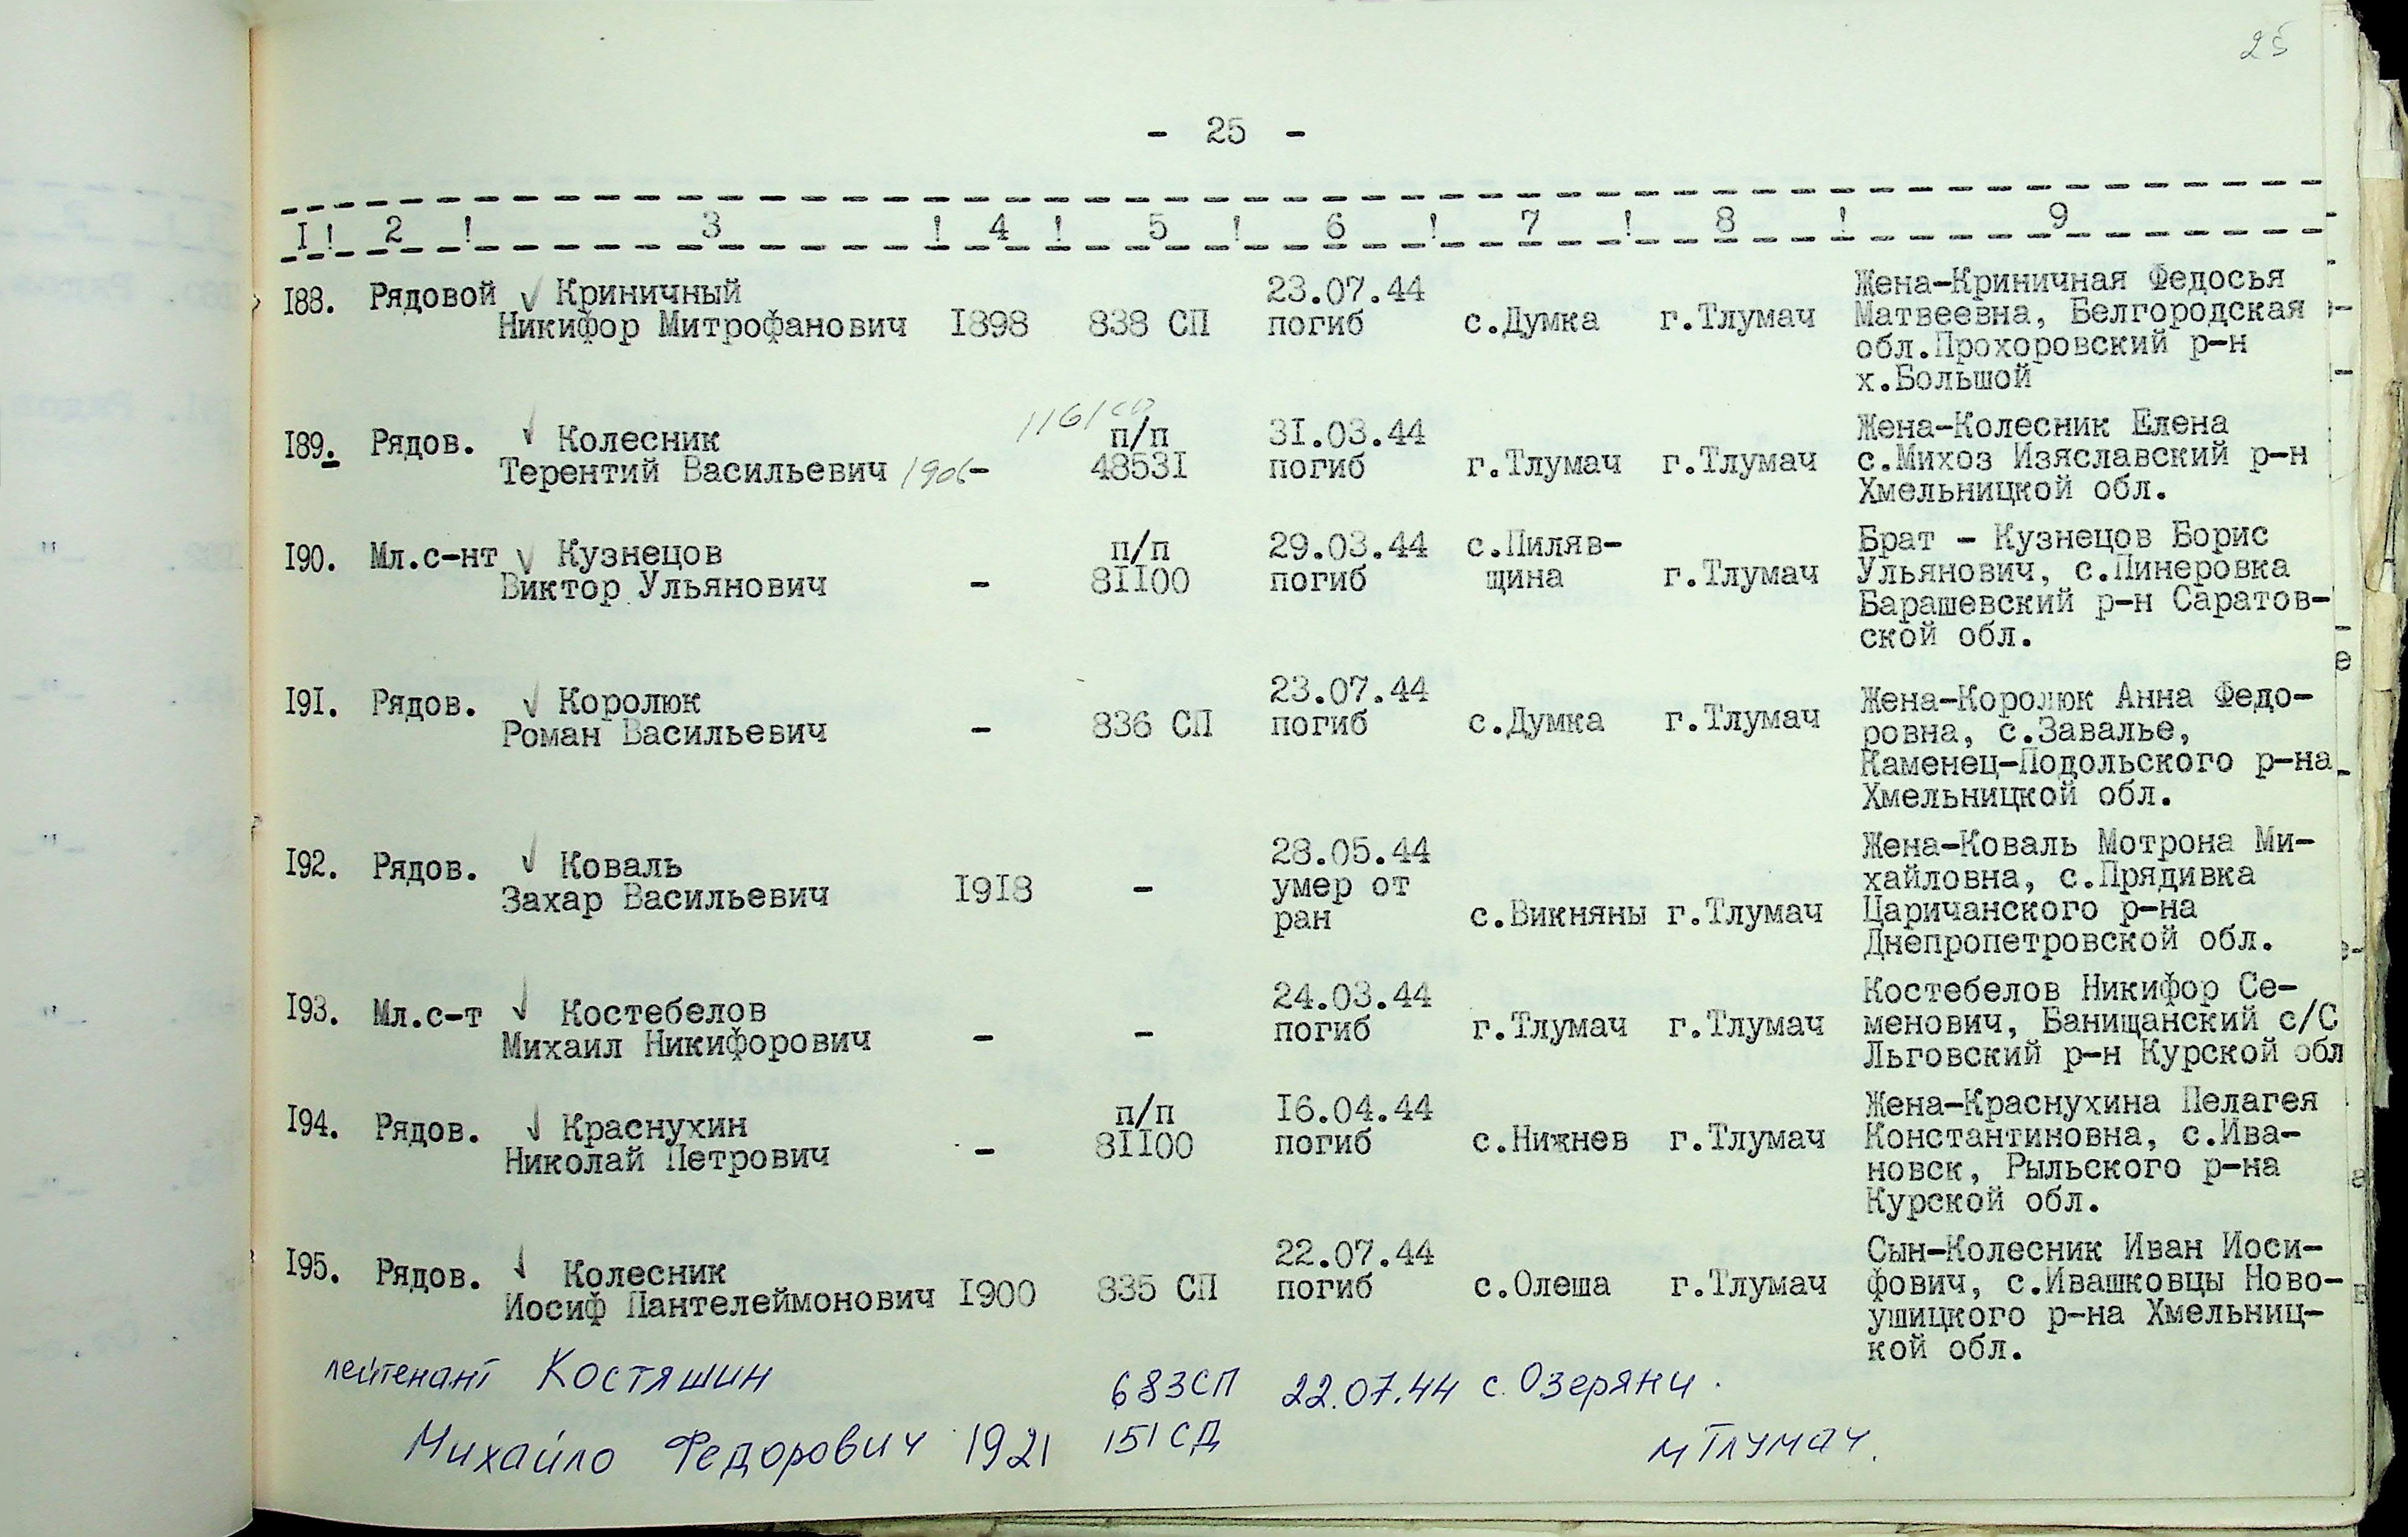 25
- 25 -
I ! 2 ! 3 ! 4 ! 5 ! 6 ! 7 ! 8 ! 9
I88. Рядовой √ Криничный 23.07.44 Жена-Криничная Федосья
Никифор Митрофанович I898 838 СП погиб с.Думка г.Тлумач Матвеевна, Белгородская
обл.Прохоровский р-н
х.Большой
1161 сп
I89. Рядов. √ Колесник п/п 3I.03.44 Жена-Колесник Елена
Терентий Васильевич 1906 - 4853I погиб г.Тлумач г.Тлумач с.Михоз Изяславский р-н
Хмельницкой обл.
I90. Мл.с-нт √ Кузнецов п/п 29.03.44 с.Пиляв- Брат - Кузнецов Борис
Виктор Ульянович - 8II00 погиб щина г.Тлумач Ульянович, с.Пинеровка
Барашевский р-н Саратов-
ской обл.
I9I. Рядов. √ Королюк 23.07.44 Жена-Королюк Анна Федо-
Роман Васильевич - 836 СП погиб с.Думка г.Тлумач ровна, с.Завалье,
Каменец-Подольского р-на
Хмельницкой обл.
I92. Рядов. √ Коваль 28.05.44 Жена-Коваль Мотрона Ми-
Захар Васильевич I9I8 - умер от хайловна, с.Прядивка
ран с.Викняны г.Тлумач Царичанского р-на
Днепропетровской обл.
I93. Мл.с-т √ Костебелов 24.03.44 Костебелов Никифор Се-
Михаил Никифорович - - погиб г.Тлумач г.Тлумач менович, Банищанский с/С
Льговский р-н Курской обл
I94. Рядов. √ Краснухин п/п I6.04.44 Жена-Краснухина Пелагея
Николай Петрович - 8II00 погиб с.Нижнев г.Тлумач Константиновна, с.Ива-
новск, Рыльского р-на
Курской обл.
I95. Рядов. √ Колесник 22.07.44 Сын-Колесник Иван Иоси-
Иосиф Пантелеймонович I900 835 СП погиб с.Олеша г.Тлумач фович, с.Ивашковцы Ново-
ушицкого р-на Хмельниц-
кой обл.
лейтенант Костяшин 683СП 22.07.44 с. Озеряни.
Михайло Федорович 1921 151 СД м Тлумач.